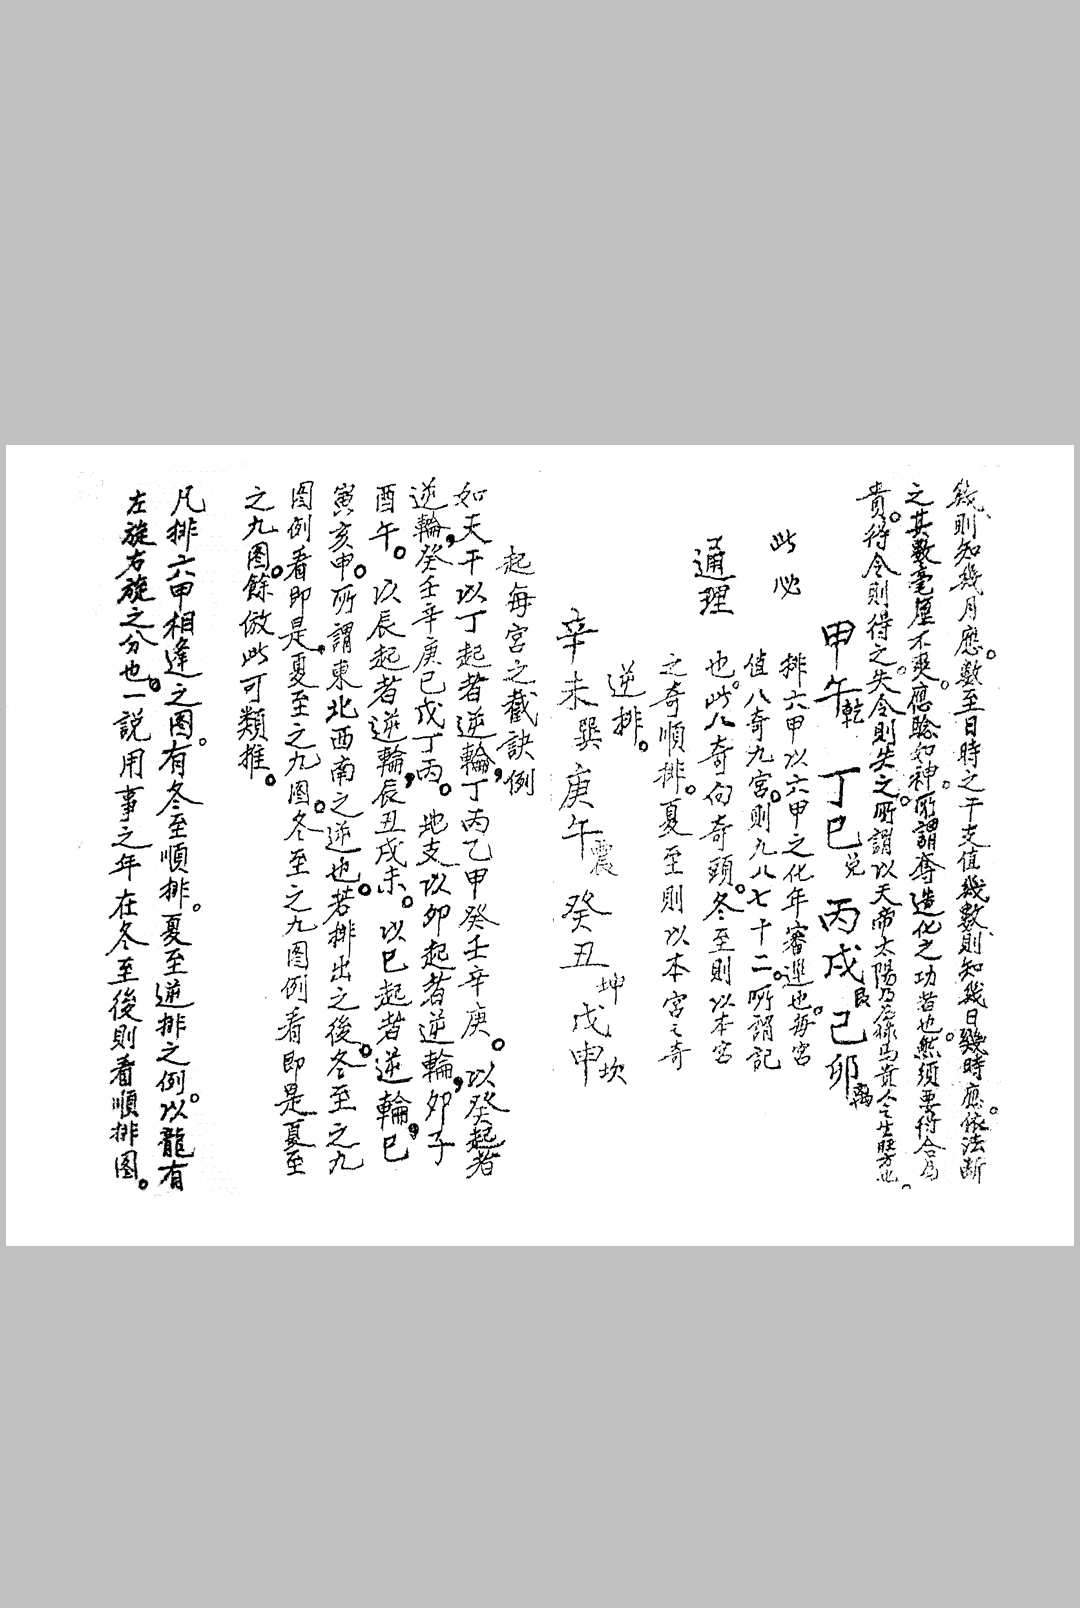 幾、則知幾月應。數至日時之干支值幾數、則知幾日幾時應。依法斷
之其數毫厘不爽。應驗如神。所謂奪造化之功者也。然須要得合為
貴。得令則得之。失令則失之。所謂以天帝太陽乃尼祿馬貴人之生旺方也。
甲午乾 丁巳兌 丙戌艮 己卯離
此必
排六甲以六甲之化年審遁也。每宮
值八奇九宮。則九八七十二。所謂記
通理
也。此八奇向奇頭。冬至則以本宮
之奇順排。夏至則以本宮之奇
逆排。
辛未巽 庚午震 癸丑坤 戊申坎
起每宮之截訣例
如天干以丁起者逆輪，丁丙乙甲癸壬辛庚。以癸起者
逆輪，癸壬辛庚己戊丁丙。地支以卯起者逆輪，卯子
酉午。以辰起者逆輪，辰丑戌未。以巳起者逆輪，巳
寅亥申。所謂東北西南之逆也。若排出之後。冬至之九
图例看即是，夏至之九图。冬至之九图例看即是夏至
之九图。餘倣此可類推。
凡排六甲相逢之图。有冬至順排。夏至逆排之例。以龍有
左旋右旋之分也。一說用事之年在冬至後則看順排图。